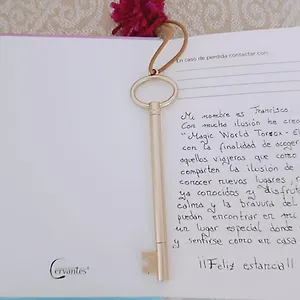 En caso de pérdida contactar con:
Mi nombre es Francisca
Con mucha ilusión he crea
"Magic World Torrox - C
con la finalidad de acoger
aquellos viajeros que como
comparten la ilusión de
conocer nuevos lugares,
ya conocidos y disfruta
calma y la bravura del
puedan encontrar en mi
un lugar especial donde
y sentirse como en casa
¡¡¡Feliz estancia!!!
Cervantes®